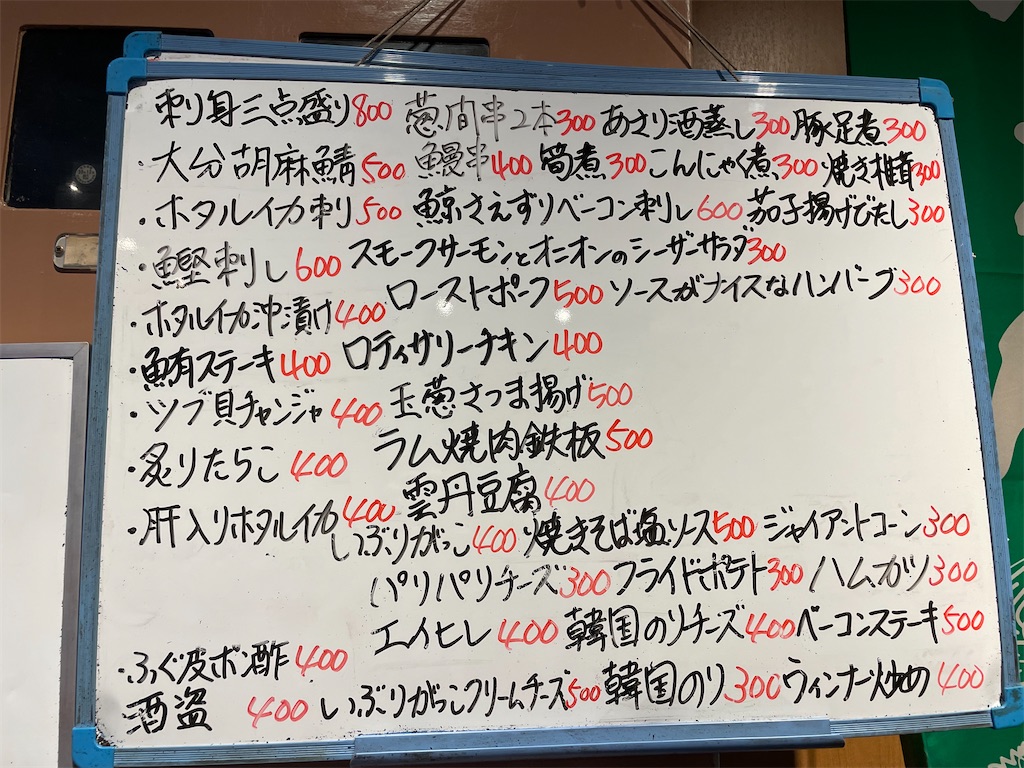 刺り身三点盛り800 葱間串2本300 あさり酒蒸し300 豚足煮300
・大分胡麻鯖500 鰻串400 筍煮300 こんにゃく煮300 焼き椎茸300
・ホタルイカ刺500 鯨さえずりベーコン刺し600 茄子揚げびたし300
・鰹刺し600 スモークサーモンとオニオンのシーザーサラダ300
・ホタルイカ沖漬け400 ローストポーク500 ソースがナイスなハンバーグ300
・鮪ステーキ400 ロティサリーチキン400
・ツブ貝チャンジャ400 玉葱さつま揚げ500
・炙りたらこ400 ラム焼肉鉄板500
雲丹豆腐400
・肝入りホタルイカ400 いぶりがっこ400 焼きそば塩ソース500 ジャイアントコーン300
パリパリチーズ300 フライドポテト300 ハムカツ300
エイヒレ400 韓国のりチーズ400 ベーコンステーキ500
・ふぐ皮ポン酢400
酒盗400 いぶりがっこクリームチーズ500 韓国のり300 ウィンナー炒め400